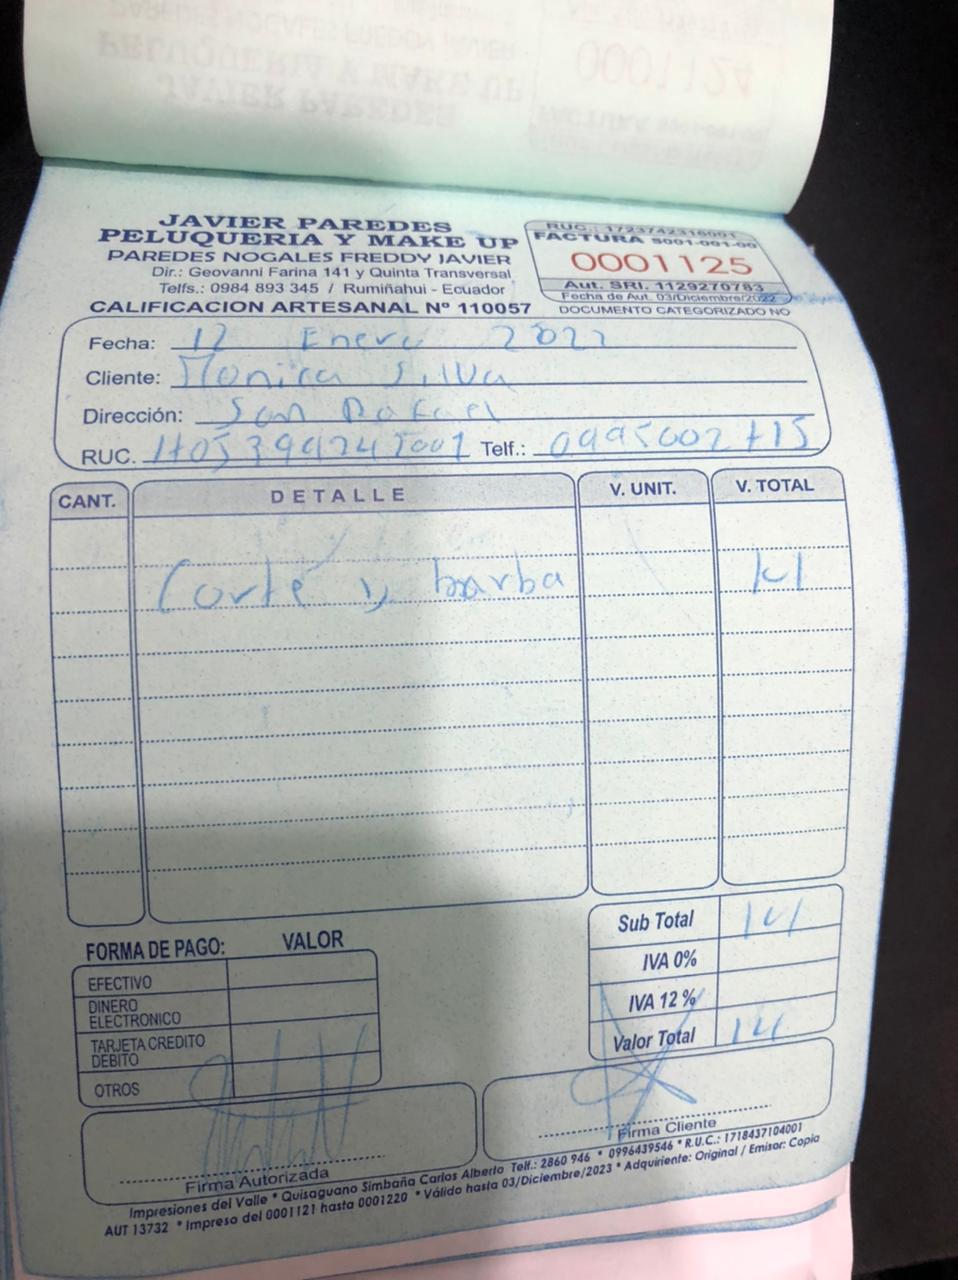 JAVIER PAREDES
PELUQUERIA Y MAKE UP
PAREDES NOGALES FREDDY JAVIER
Dir.: Geovanni Farina 141 y Quinta Transversal
Telfs.: 0984 893 345 / Rumiñahui - Ecuador
CALIFICACION ARTESANAL Nº 110057
RUC.: 1723742316001
FACTURA S001-001-00
0001125
Aut. SRI. 1129270783
Fecha de Aut. 03/Diciembre/2022
DOCUMENTO CATEGORIZADO NO
Fecha: 12 Enero 2022
Cliente: Monica Silva
Dirección: San Rafael
RUC. Telf.:
CANT. DETALLE V. UNIT. V. TOTAL
Corte y barba 14
FORMA DE PAGO: VALOR
EFECTIVO
DINERO ELECTRONICO
TARJETA CREDITO DEBITO
OTROS
Sub Total 14
IVA 0%
IVA 12%
Valor Total 14
Firma Autorizada
Firma Cliente
Impresiones del Valle * Quisaguano Simbaña Carlos Alberto Telf.: 2860 946 * 0996439546 * R.U.C.: 1718437104001
AUT 13732 * Impreso del 0001121 hasta 0001220 * Válido hasta 03/Diciembre/2023 * Adquiriente: Original / Emisor: Copia